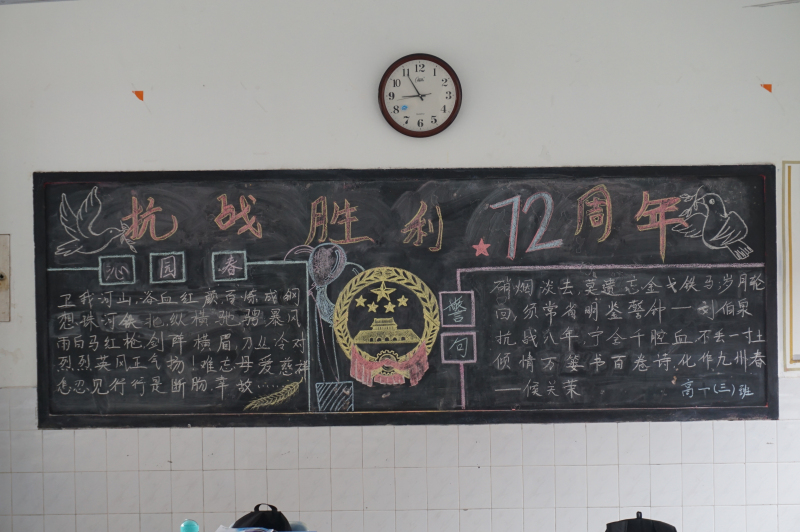 抗战胜利72周年
沁园春
卫我河山.浴血红颜百炼成钢
想.珠河铁北.纵横驰骋暴风
雨白马红枪剑阵横眉刀丛冷对
烈烈英风正气扬!难忘母爱慈祥
怎忍见行行是断肠.车故……
警句
硝烟淡去,莫遗忘金戈铁马岁月轮
回,须常省明鉴警钟——刘伯果
抗战八年,宁全千腔血不丢一杜
倾情万篓书百卷诗,化作九州春
——侯关荣
高一(三)班